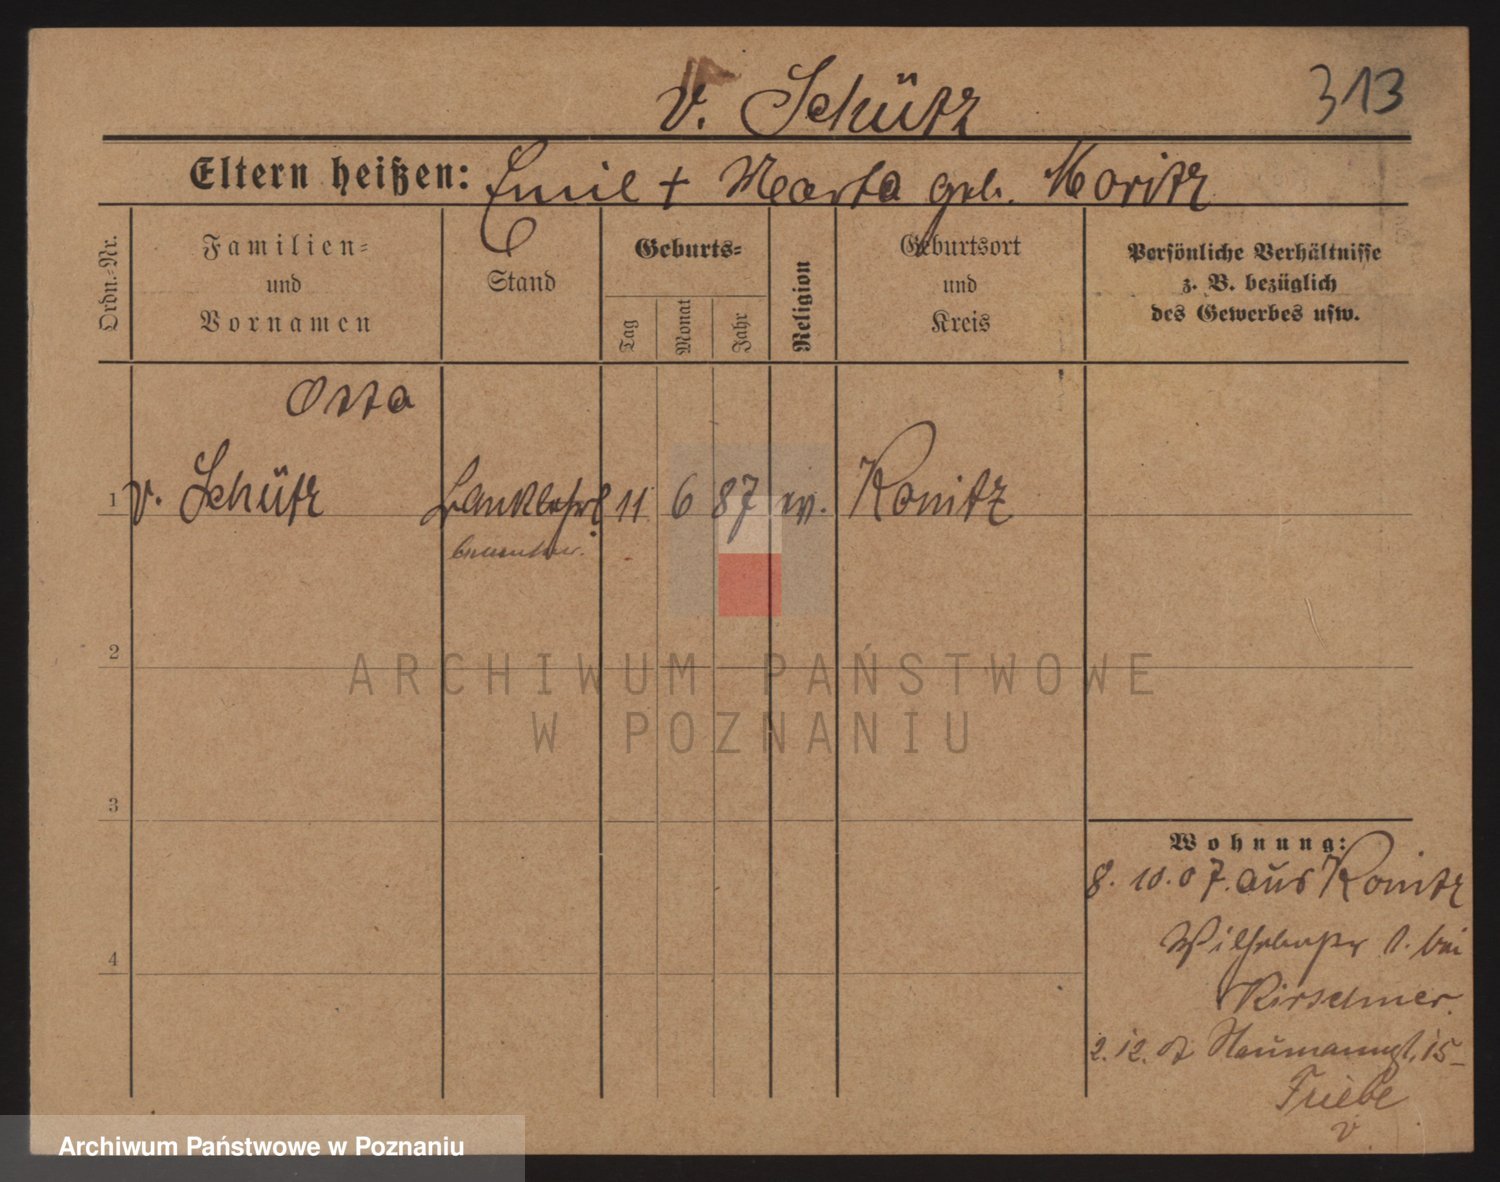 313
v. Schütz
Eltern heißen: Emil + Marta geb. Moritz
Ordn.=Nr.
Familien=
und
Vornamen
Stand
Geburts=
Tag
Monat
Jahr
Religion
Geburtsort
und
Kreis
Persönliche Verhältnisse
z. B. bezüglich
des Gewerbes usw.
1 v. Schütz 11 6 87 Konitz
2
3
4
Wohnung:
8. 10. 07. aus Konitz
bei
Kirschner.
2. 12. 15
Friebe
ARCHIWUM PAŃSTWOWE
W POZNANIU
Archiwum Państwowe w Poznaniu